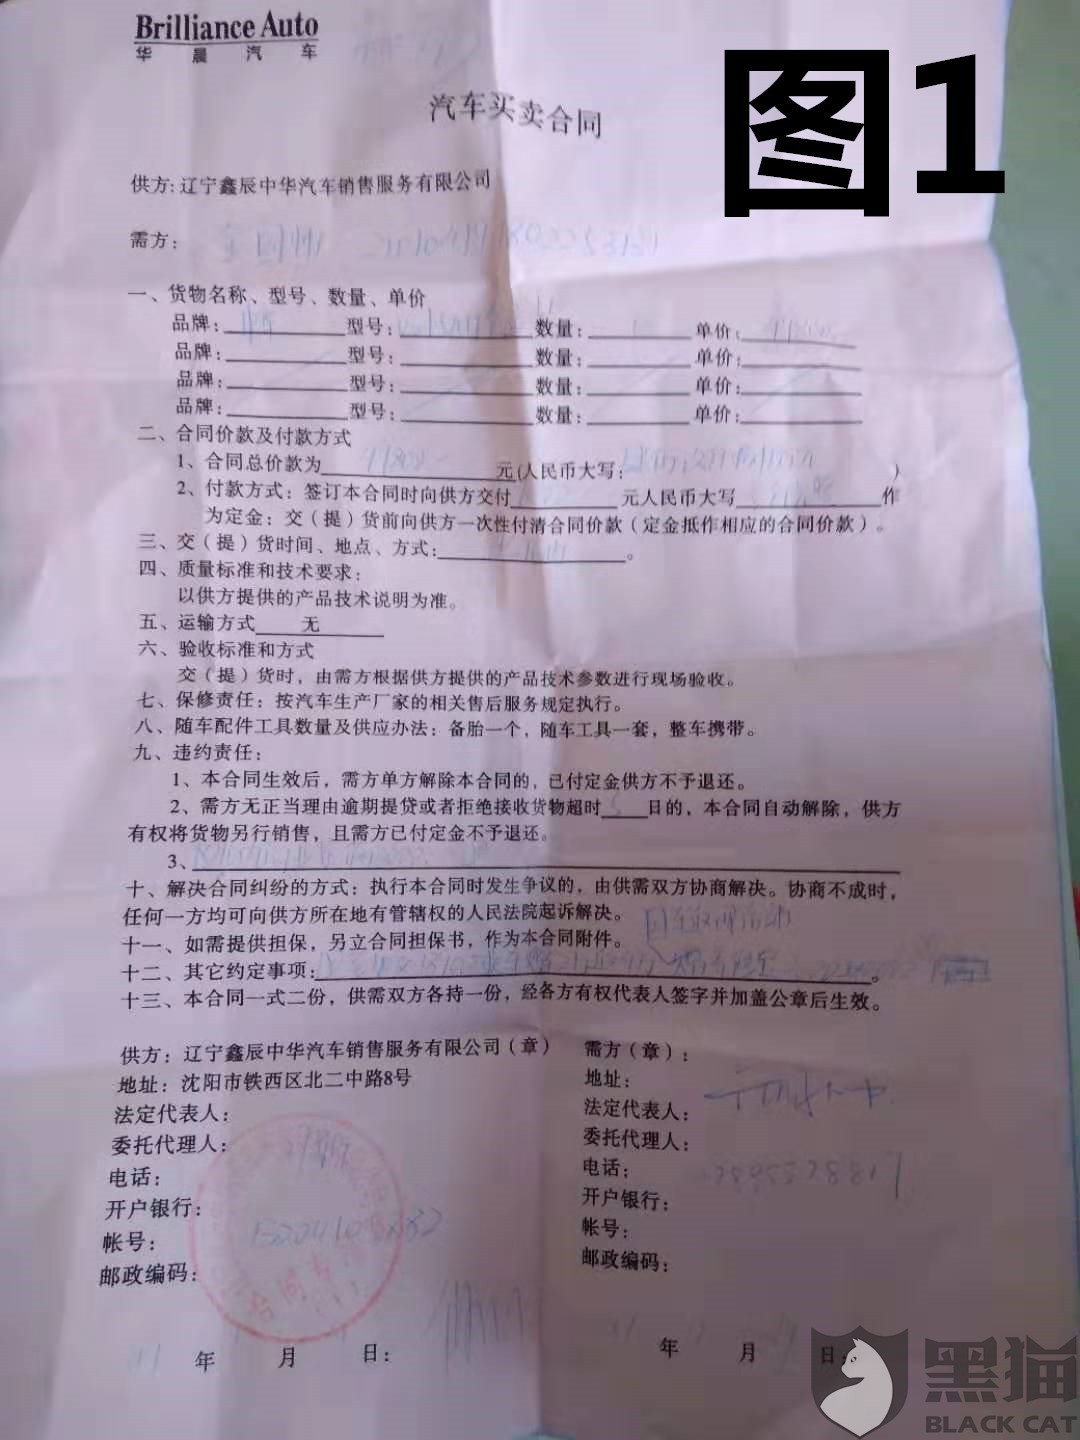 Brilliance Auto
华晨汽车
图1
汽车买卖合同
供方:辽宁鑫辰中华汽车销售服务有限公司
需方:
一、货物名称、型号、数量、单价
品牌: 型号: 数量: 单价:
品牌: 型号: 数量: 单价:
品牌: 型号: 数量: 单价:
品牌: 型号: 数量: 单价:
二、合同价款及付款方式
1、合同总价款为 元(人民币大写: )
2、付款方式:签订本合同时向供方交付 元人民币大写 作
为定金;交(提)货前向供方一次性付清合同价款(定金抵作相应的合同价款)。
三、交(提)货时间、地点、方式: 。
四、质量标准和技术要求:
以供方提供的产品技术说明为准。
五、运输方式 无
六、验收标准和方式
交(提)货时,由需方根据供方提供的产品技术参数进行现场验收。
七、保修责任:按汽车生产厂家的相关售后服务规定执行。
八、随车配件工具数量及供应办法:备胎一个,随车工具一套,整车携带。
九、违约责任:
1、本合同生效后,需方单方解除本合同的,已付定金供方不予退还。
2、需方无正当理由逾期提贷或者拒绝接收货物超时 日的,本合同自动解除,供方
有权将货物另行销售,且需方已付定金不予退还。
3、
十、解决合同纠纷的方式:执行本合同时发生争议的,由供需双方协商解决。协商不成时,
任何一方均可向供方所在地有管辖权的人民法院起诉解决。
十一、如需提供担保,另立合同担保书,作为本合同附件。
十二、其它约定事项: 。
十三、本合同一式二份,供需双方各持一份,经各方有权代表人签字并加盖公章后生效。
供方:辽宁鑫辰中华汽车销售服务有限公司(章)
地址:沈阳市铁西区北二中路8号
法定代表人:
委托代理人:
电话:
开户银行:
帐号:
邮政编码:
年 月 日:
需方(章):
地址:
法定代表人:
委托代理人:
电话:
开户银行:
帐号:
邮政编码:
年 月 日:
黑猫
BLACK CAT